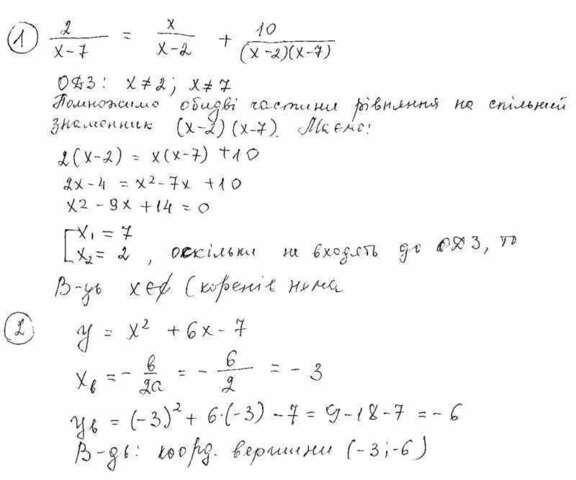 1 2/(x-7) = x/(x-2) + 10/((x-2)(x-7))
ОДЗ: x≠2; x≠7
Помножимо обидві частини рівняння на спільний
знаменник (x-2)(x-7). Маємо:
2(x-2) = x(x-7) +10
2x-4 = x²-7x +10
x²-9x+14=0
[x₁ = 7
x₂ = 2, оскільки не входять до ОДЗ, то
В-дь x∈∅ (коренів нема
2 y = x² + 6x - 7
xв = - в/2a = - 6/2 = -3
yв = (-3)² + 6·(-3) - 7 = 9-18-7 = -6
В-дь: коорд. вершини (-3;-6)